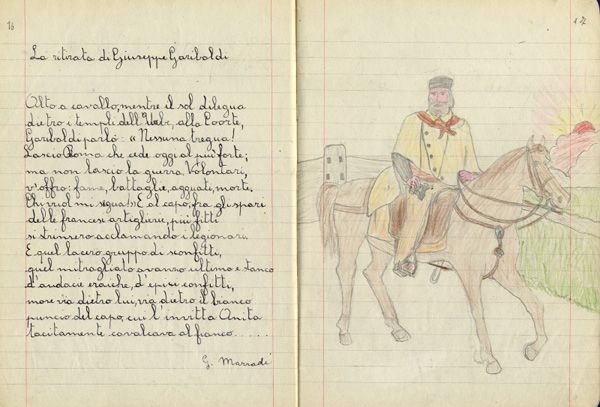 16
La ritirata di Giuseppe Garibaldi
Alto a cavallo, mentre il sol dilegua
dietro i templi dell'Urbe, alla Coorte,
Garibaldi parlò: «Nessuna tregua!
Lascio Roma che cede oggi al più forte;
ma non lascio la guerra. Volontari,
v'offro: fame, battaglie, agguati, morte.
Chi vuol mi segua!» E al capo, fra gli spari
delle francesi artiglierie, più fitti
si strinsero acclamando i legionari.
E quel lacero gruppo di sconfitti,
quel mitragliato avanzo ultimo e stanco
d'audacie eroiche, d'epici conflitti,
move via dietro lui, via dietro il bianco
puncio del capo, cui l'invitta Anita
tacitamente cavalcava al fianco.....
G. Marradi
17